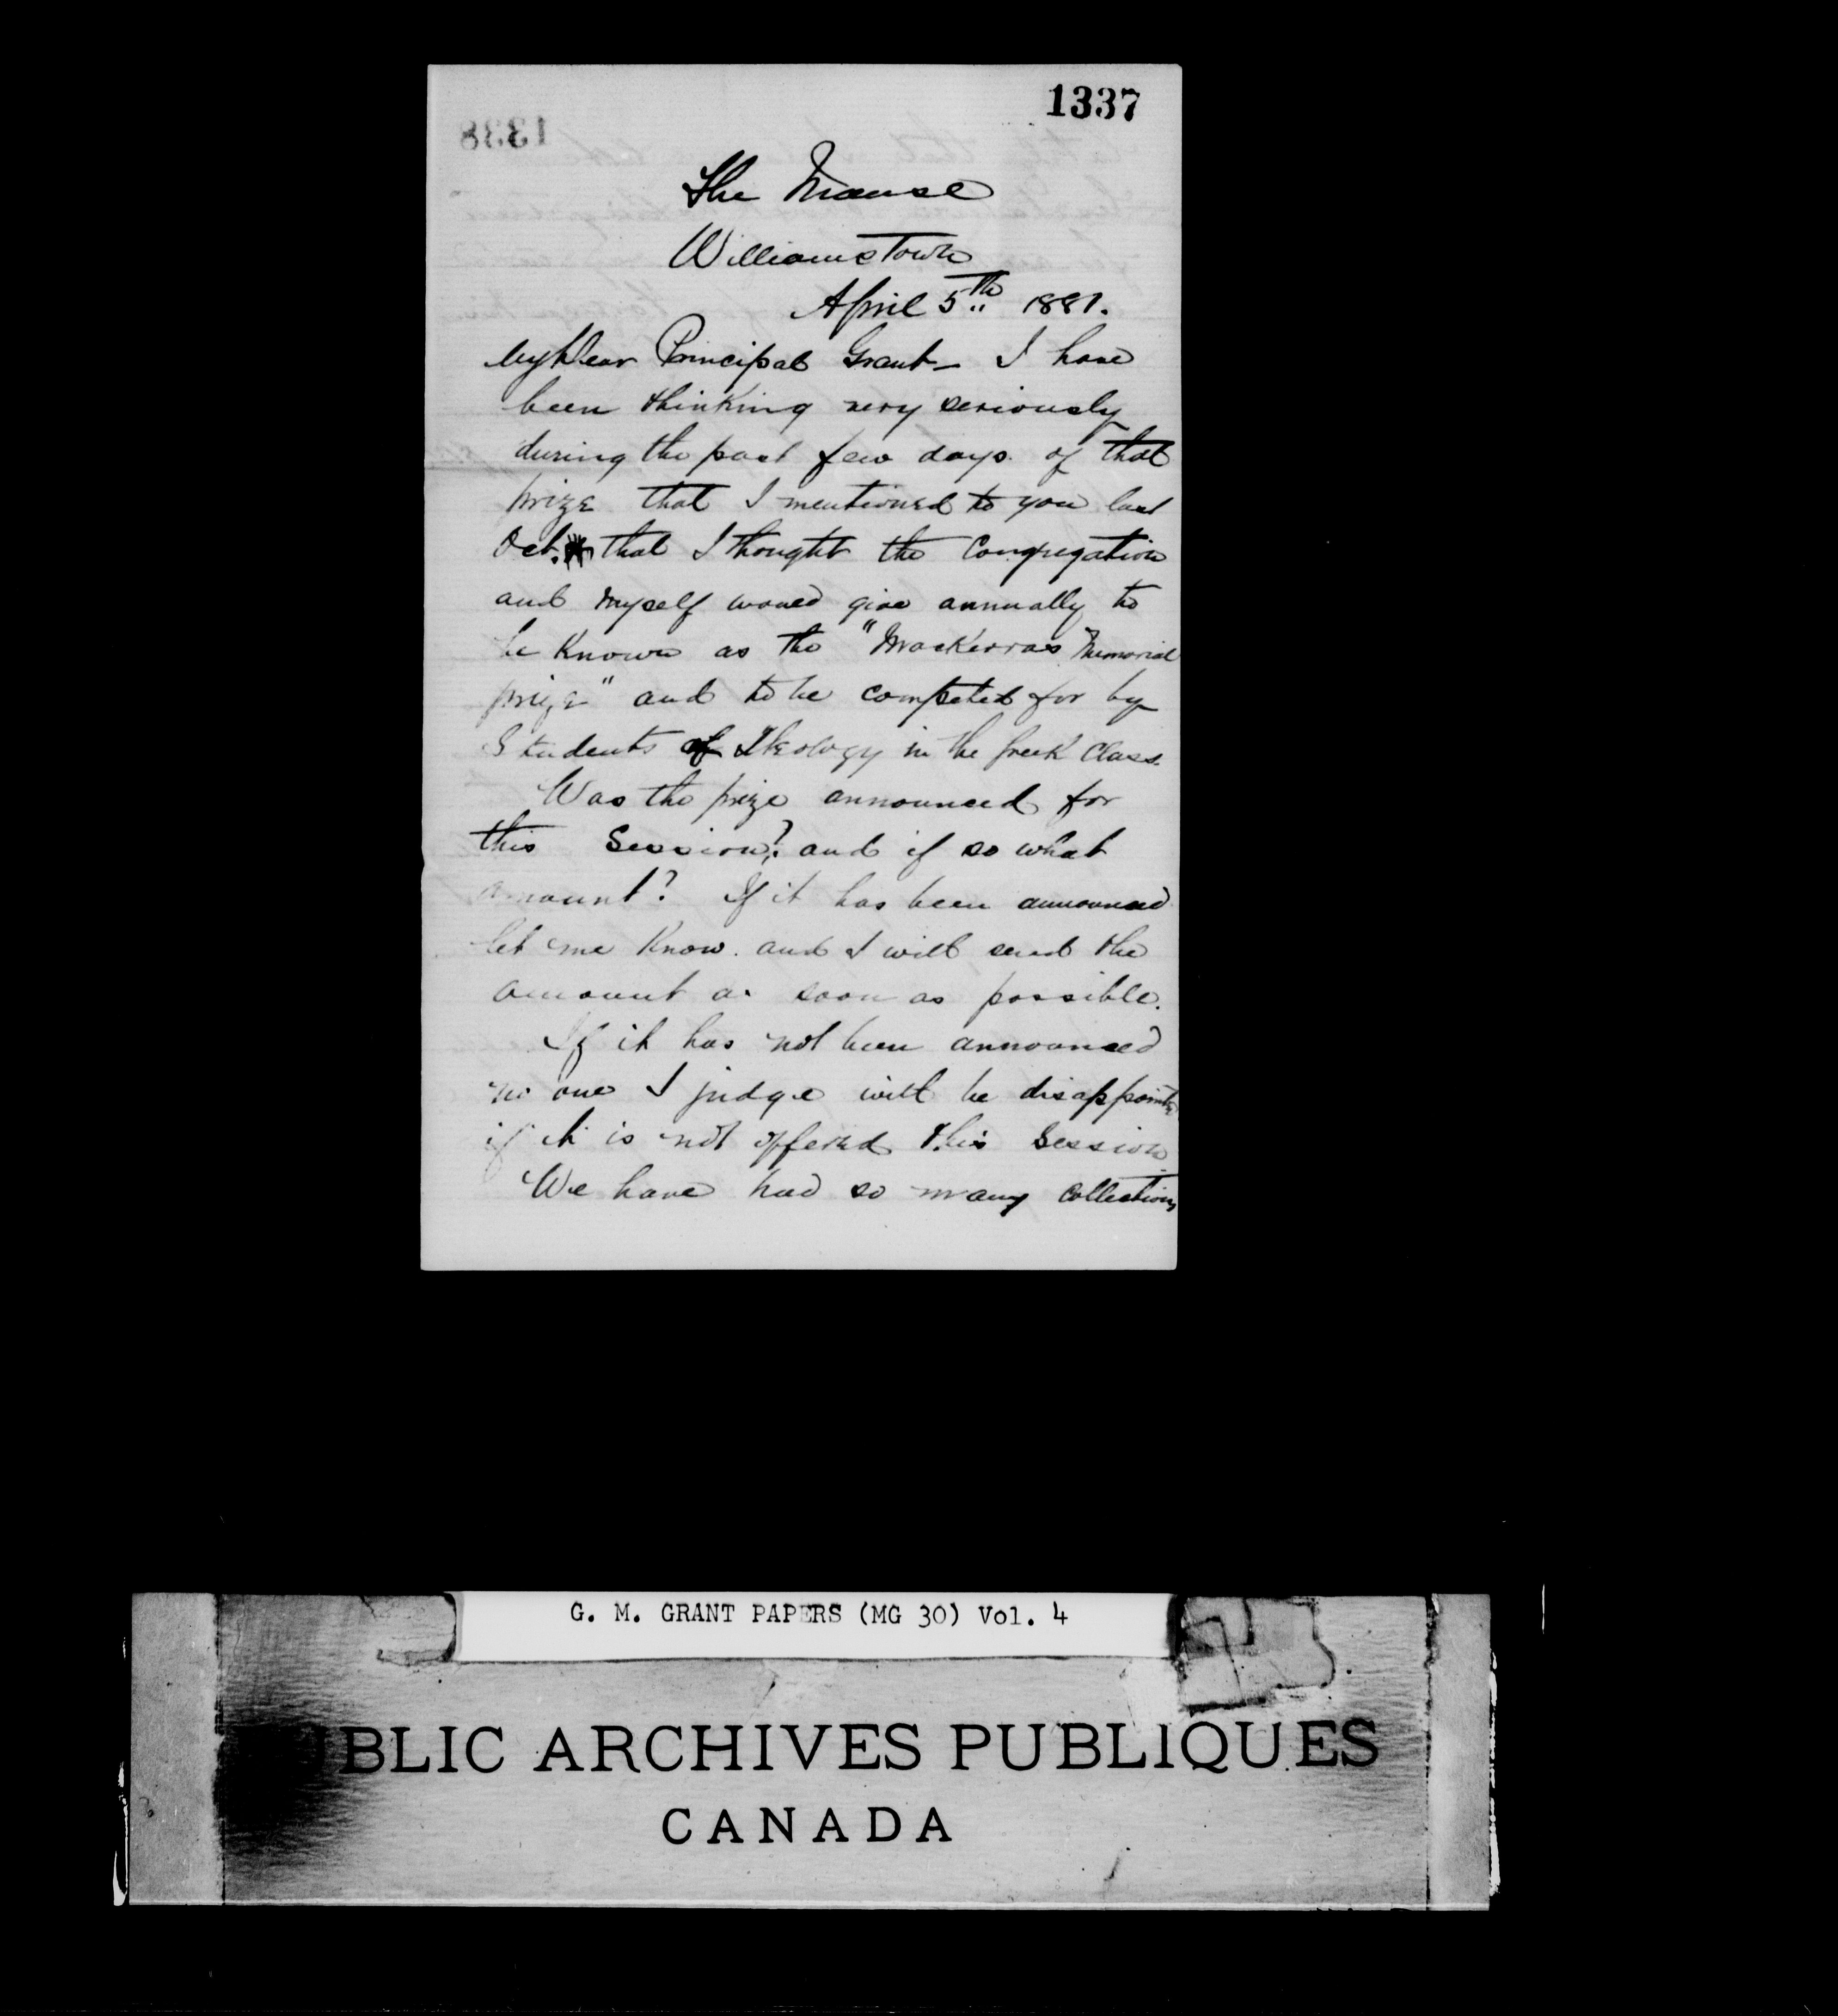 1337
1338
The Manse
Williamstown
April 5th 1881.
My Dear Principal Grant — I have
been thinking very seriously
during the past few days of that
prize that I mentioned to you last
Oct. that I thought the Congregation
and myself would give annually to
be known as the "MacKerras Memorial
prize" and to be competed for by
Students of Theology in the Greek Class.
Was the prize announced for
this Session? and if so what
amount? If it has been announced
let me know. and I will send the
amount as soon as possible.
If it has not been announced
no one I judge will be disappointed
if it is not offered this Session
We have had so many collections
G. M. GRANT PAPERS (MG 30) Vol. 4
BLIC ARCHIVES PUBLIQUES
CANADA